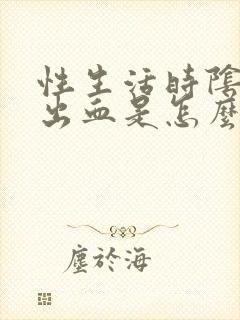 性生活時陰
出血是怎麼
塵於海